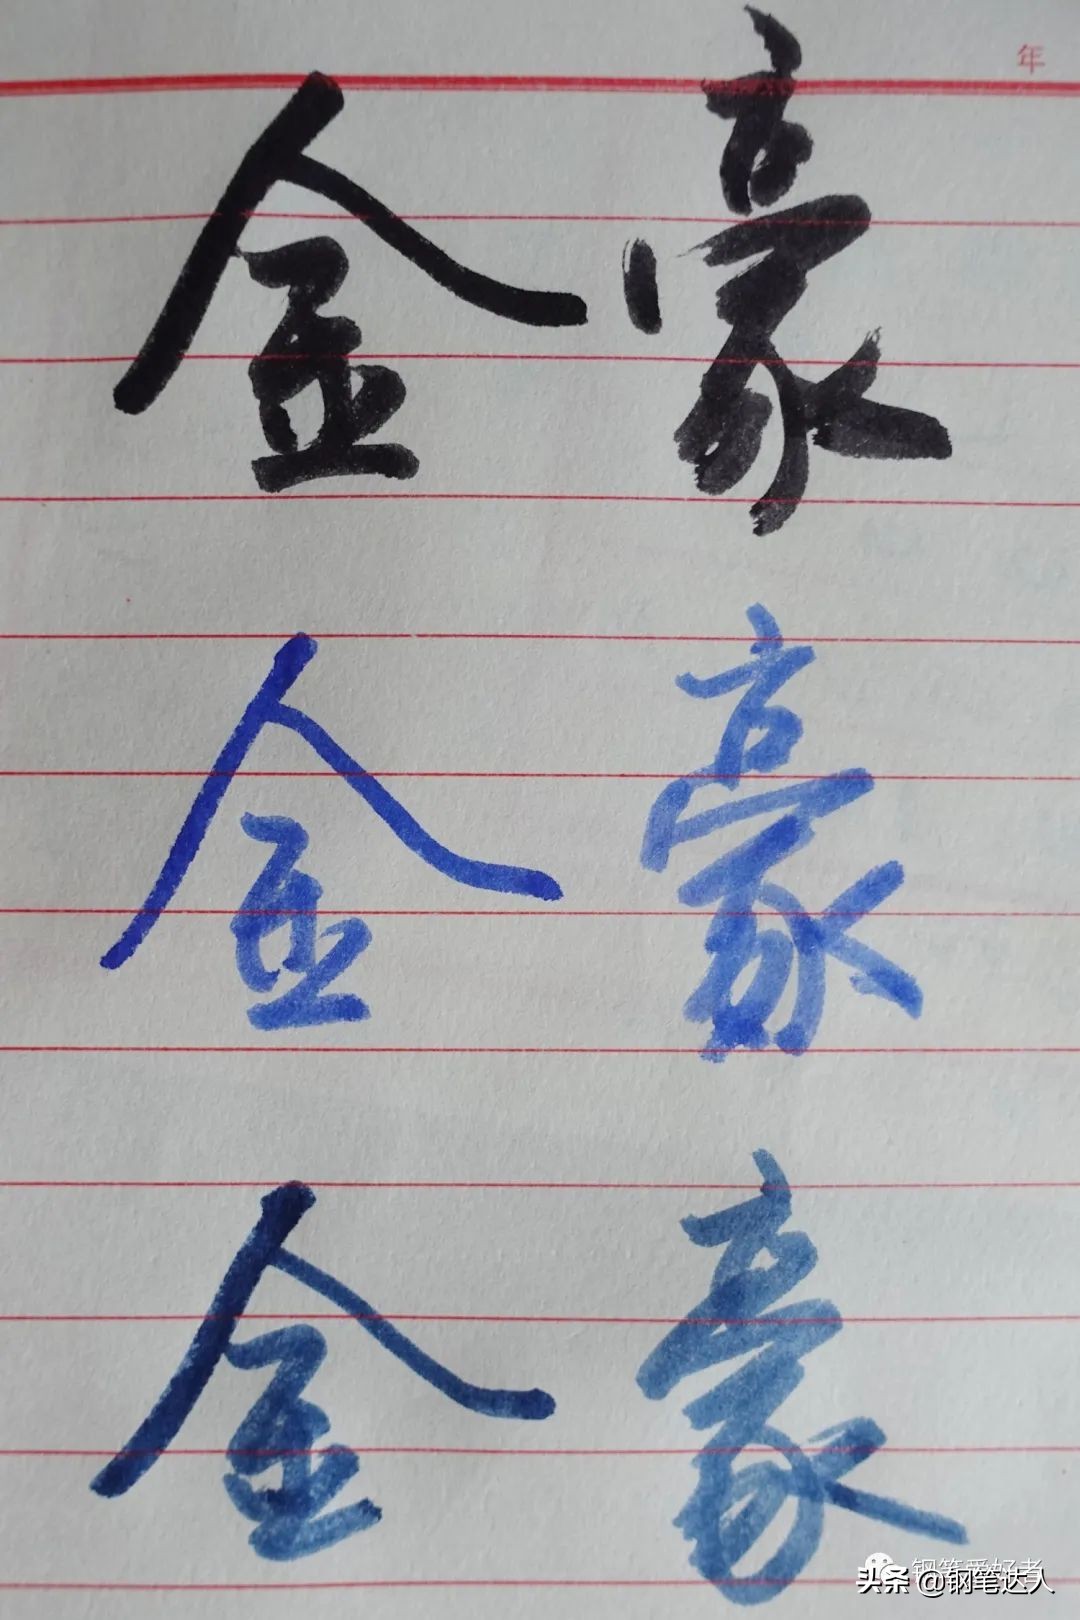 年
金豪
金豪
金豪
钢笔爱好者
头条 @钢笔达人